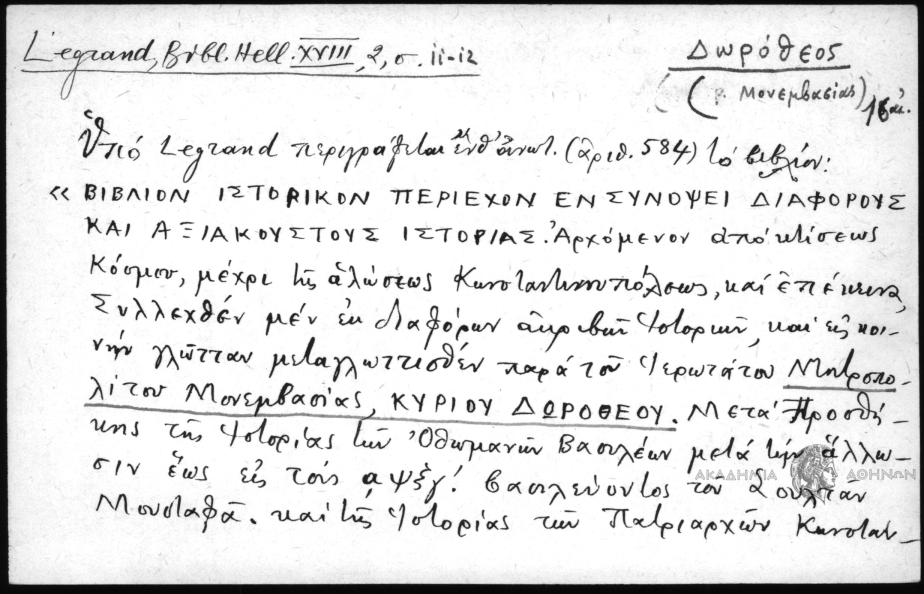 Legrand, Bibl. Hell. XVIII, 2, σ. 11-12
Δωρόθεος
(μ. Μονεμβασίας) 16 αἰ.
Ὑπό Legrand περιγράφεται ἐνθ' ἀνωτ. (ἀριθ. 584) τό βιβλίον:
«ΒΙΒΛΙΟΝ ΙΣΤΟΡΙΚΟΝ ΠΕΡΙΕΧΟΝ ΕΝ ΣΥΝΟΨΕΙ ΔΙΑΦΟΡΟΥΣ
ΚΑΙ ΑΞΙΑΚΟΥΣΤΟΥΣ ΙΣΤΟΡΙΑΣ. Ἀρχόμενον ἀπό κτίσεως
Κόσμου, μέχρι τῆς ἁλώσεως Κωνσταντινουπόλεως, καί ἐπέκεινα,
Συλλεχθέν μέν ἐκ διαφόρων ἀκριβῶν Ἱστορικῶν, καί εἰς κοι-
νήν γλῶτταν μεταγλωττισθέν παρά τοῦ Ἱερωτάτου Μητροπο-
λίτου Μονεμβασίας, ΚΥΡΙΟΥ ΔΩΡΟΘΕΟΥ. Μετά Προσθή-
κης τῆς Ἱστορίας τῶν Ὀθωμανῶν Βασιλέων μετά τήν ἅλω-
σιν ἕως εἰς τούς αψξγ΄. βασιλεύοντος τοῦ Σουλτάν
Μουσταφᾶ. καί τῆς Ἱστορίας τῶν Πατριαρχῶν Κωνσταν-
ΑΚΑΔΗΜΙΑ ΑΘΗΝΩΝ